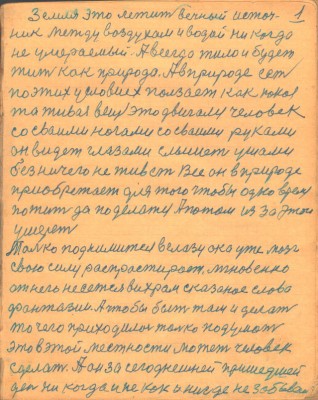 Земля это летит вечный источ- 1
ник между воздухом и водой ни когда
не умераемый А всегда жило и будет
жит как природа. А в природе сет
по этих условиех ползает как
та живая вещ это двигали человек
со своими ногами со своими руками
он видет глазами слышет ушами
без ничего не живет Все он в природе
приобретает для того чтобы одно время
пожит да поделать А потом из за этого
умерет
Только поднимится в глазу она уже мозг
свою силу распрастирает, мгновенно
от него несется вихрам сказаное слова
фантазии. А чтобы быть там и делат
то чего приходилос толко подумат
это в этой местности может человек
сделат. А он за сегоднешней пришедшей
ден ни когда и не как и нигде не забывает